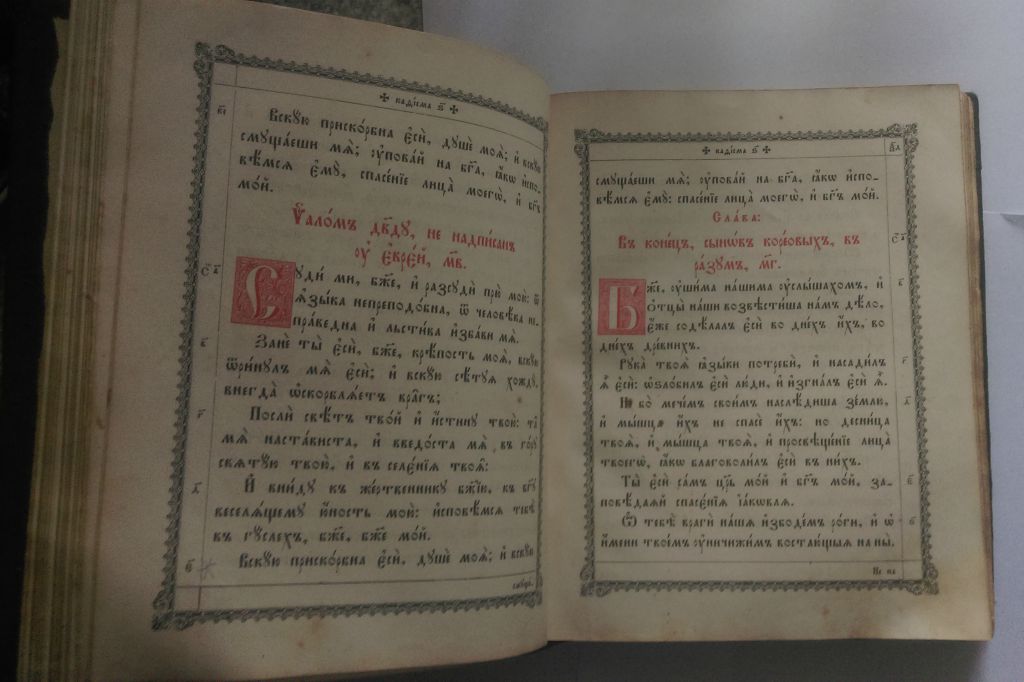 ✠ каѳісма ѕ҃ ✠
Вскꙋю приско́рбна є҆сѝ, дꙋшѐ моѧ̀; и҆ вскꙋю
смꙋща́еши мѧ̀; ᲂу҆пова́й на бг҃а, ꙗ҆́кѡ и҆спо-
вѣ́мсѧ є҆мꙋ̀, спасе́нїе лица̀ моегѡ̀, и҆ бг҃ъ
мо́й.
Ѱало́мъ дв҃дꙋ, не надпи́санъ
ᲂу҆ є҆вре́й, м҃в.
Сꙋди́ ми, бж҃е, и҆ разсꙋдѝ прю̀ мою̀: ѿ
ꙗ҆зы́ка непреподо́бна, ѿ человѣ́ка не-
пра́ведна и҆ льсти́ва и҆зба́ви мѧ̀.
Занѐ ты̀ є҆сѝ, бж҃е, крѣ́пость моѧ̀, вскꙋю
ѿри́нꙋлъ мѧ̀ є҆сѝ; и҆ вскꙋю сѣ́тꙋѧ хождꙋ̀,
внегда̀ ѡ҆скорблѧ́етъ вра́гъ;
Послѝ свѣ́тъ тво́й и҆ и҆́стинꙋ твою̀: та̑
мѧ̀ наста́виста, и҆ введо́ста мѧ̀ въ го́рꙋ
свѧтꙋ́ю твою̀, и҆ въ селє́нїѧ твоѧ̑:
И҆ вни́дꙋ къ же́ртвенникꙋ бж҃їю, къ бг҃ꙋ
веселѧ́щемꙋ ю҆́ность мою̀: и҆сповѣ́мсѧ тебѣ̀
въ гꙋ́слехъ, бж҃е, бж҃е мо́й.
Вскꙋю приско́рбна є҆сѝ, дꙋшѐ моѧ̀; и҆ вскꙋю
✠ каѳісма ѕ҃ ✠
смꙋща́еши мѧ̀; ᲂу҆пова́й на бг҃а, ꙗ҆́кѡ и҆спо-
вѣ́мсѧ є҆мꙋ̀: спасе́нїе лица̀ моегѡ̀, и҆ бг҃ъ мо́й.
Сла́ва:
Въ коне́цъ, сынѡ́въ коре́овыхъ, въ
ра́зꙋмъ, м҃г.
Бж҃е, ᲂу҆ши́ма на́шима ᲂу҆слы́шахомъ, и҆
ѻ҆тцы̀ на́ши возвѣсти́ша на́мъ дѣ́ло,
є҆́же содѣ́лалъ є҆сѝ во дне́хъ и҆́хъ, во
дне́хъ дре́внихъ.
Рꙋка̀ твоѧ̀ ꙗ҆зы́ки потребѝ, и҆ насади́лъ
ѧ҆̀ є҆сѝ: ѡ҆ѕло́билъ є҆сѝ лю́ди, и҆ и҆згна́лъ є҆сѝ ѧ҆̀.
Не бо̀ мече́мъ свои́мъ наслѣ́диша зе́млю,
и҆ мы́шца и҆́хъ не спасѐ и҆́хъ: но десни́ца
твоѧ̀, и҆ мы́шца твоѧ̀, и҆ просвѣще́нїе лица̀
твоегѡ̀, ꙗ҆́кѡ благоволи́лъ є҆сѝ въ ни́хъ.
Ты̀ є҆сѝ са́мъ цр҃ь мо́й и҆ бг҃ъ мо́й, за-
повѣ́даѧй спасє́нїѧ і҆а́кѡвлѧ.
Ѡ҆ тебѣ̀ врагѝ на́шѧ и҆збоде́мъ ро́ги, и҆ ѡ҆
и҆́мени твое́мъ ᲂу҆ничижи́мъ востаю́щыѧ на ны̀.
Не на